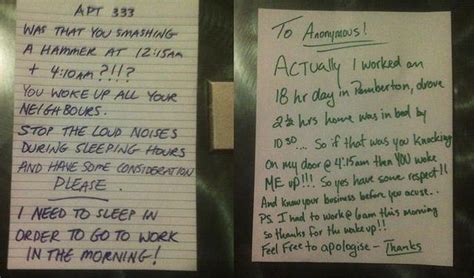 APT 333
WAS THAT YOU SMASHING
A HAMMER AT 12:15am
+ 4:10am?!!?
YOU WOKE UP ALL YOUR
NEIGHBOURS.
STOP THE LOUD NOISES
DURING SLEEPING HOURS
AND HAVE SOME CONSIDERATION
PLEASE.
I NEED TO SLEEP IN
ORDER TO GO TO WORK
IN THE MORNING!
To Anonymous!
ACTually I worked an
18 hr day in Pemberton, drove
2 ½ hrs home was in bed by
10 30 ... So if that was you knocking
on my door @ 4:15am then YOU woke
ME up!!! So yes have some respect!!
And know your business before you acuse...
PS. I had to work @ 6am this morning
so thanks for the wake up!!
Feel Free to apologise - Thanks